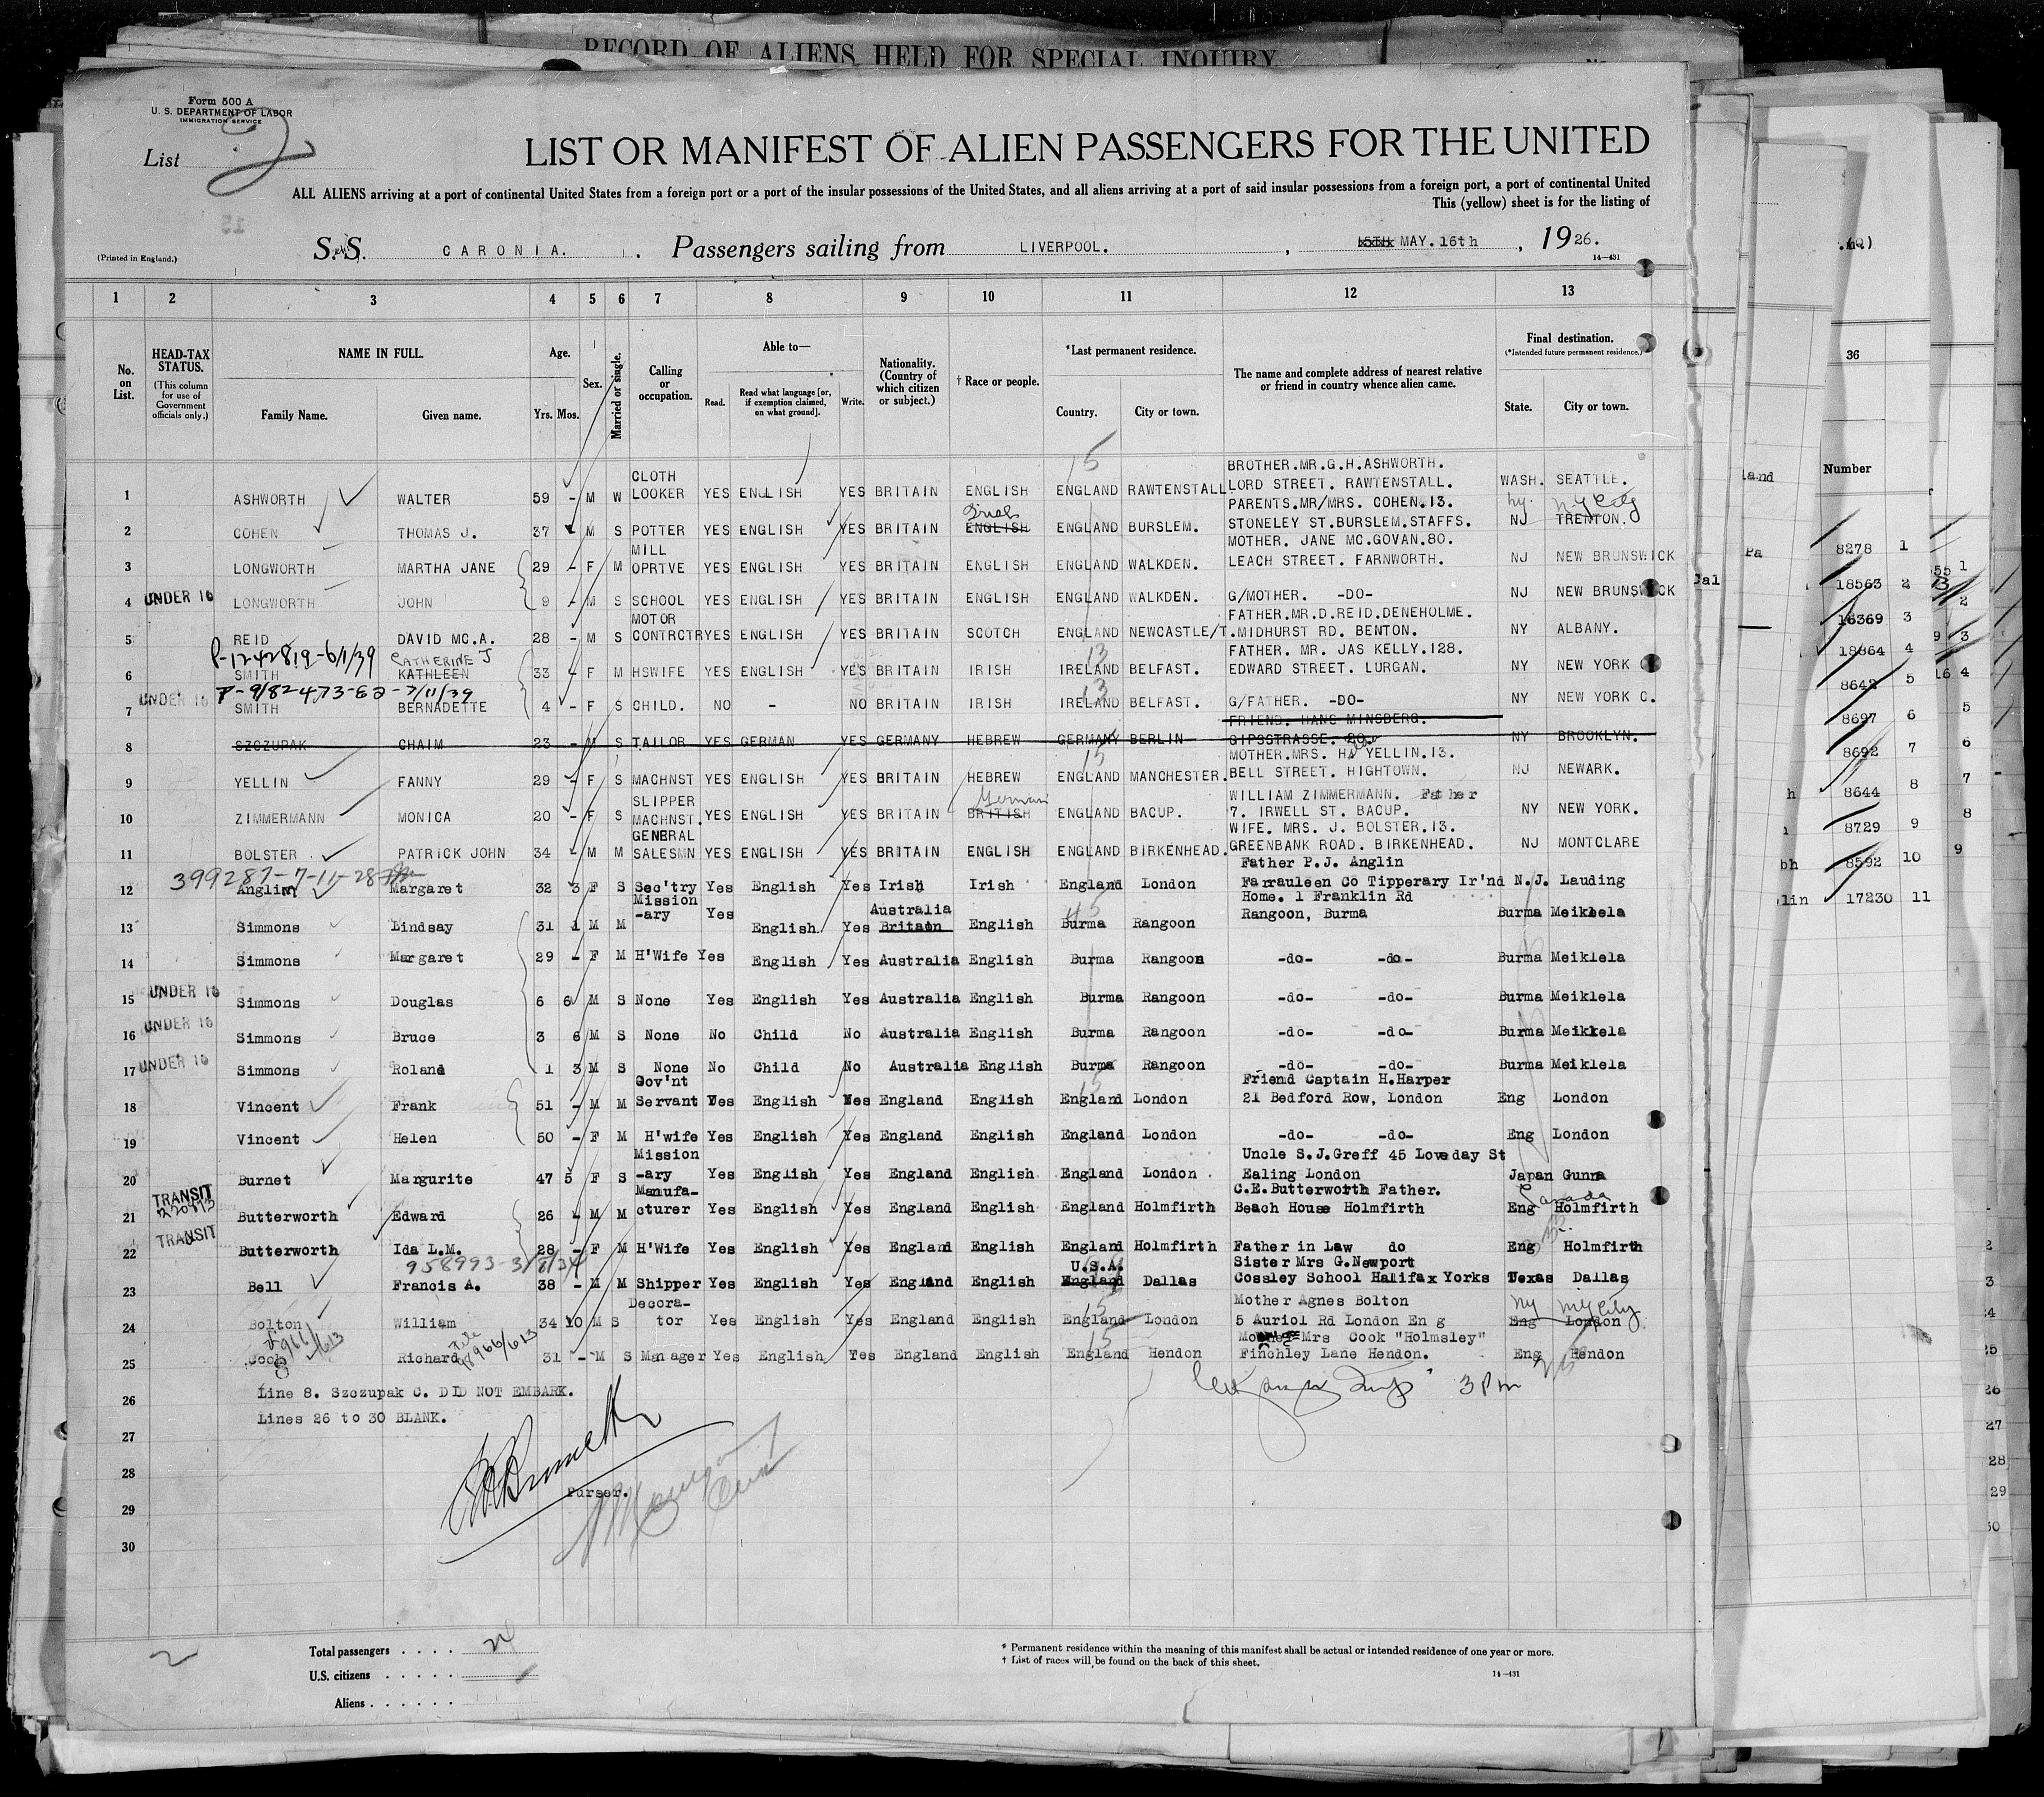 RECORD OF ALIENS HELD FOR SPECIAL INQUIRY
Form 500 A
U. S. DEPARTMENT OF LABOR
IMMIGRATION SERVICE
List 2
LIST OR MANIFEST OF ALIEN PASSENGERS FOR THE UNITED
ALL ALIENS arriving at a port of continental United States from a foreign port or a port of the insular possessions of the United States, and all aliens arriving at a port of said insular possessions from a foreign port, a port of continental United
This (yellow) sheet is for the listing of
(Printed in England.)
S.S. CARONIA. Passengers sailing from LIVERPOOL. , 15TH MAY.16th , 1926.
14—431
1 2 3 4 5 6 7 8 9 10 11 12 13
No. on List.
HEAD-TAX STATUS. (This column for use of Government officials only.)
NAME IN FULL. Family Name. Given name.
Age. Yrs. Mos.
Sex.
Married or single.
Calling or occupation.
Able to— Read. Read what language [or, if exemption claimed, on what ground]. Write.
Nationality. (Country of which citizen or subject.)
† Race or people.
*Last permanent residence. Country. City or town.
The name and complete address of nearest relative or friend in country whence alien came.
Final destination. (*Intended future permanent residence.) State. City or town.
1 ASHWORTH WALTER 59 - M W CLOTH LOOKER YES ENGLISH YES BRITAIN ENGLISH ENGLAND RAWTENSTALL BROTHER.MR.G.H.ASHWORTH. LORD STREET. RAWTENSTALL. WASH. SEATTLE.
2 COHEN THOMAS J. 37 - M S POTTER YES ENGLISH YES BRITAIN ENGLISH Irish ENGLAND BURSLEM. PARENTS.MR/MRS. COHEN.13. STONELEY ST.BURSLEM.STAFFS. NJ TRENTON. Ny. N.Y City
3 LONGWORTH MARTHA JANE 29 - F M MILL OPRTVE YES ENGLISH YES BRITAIN ENGLISH ENGLAND WALKDEN. MOTHER. JANE MC.GOVAN.80. LEACH STREET. FARNWORTH. NJ NEW BRUNSWICK
4 UNDER 16 LONGWORTH JOHN 9 - M S SCHOOL YES ENGLISH YES BRITAIN ENGLISH ENGLAND WALKDEN. G/MOTHER. -DO- NJ NEW BRUNSWICK
5 REID DAVID MC.A. 28 - M S MOTOR CONTRCTR YES ENGLISH YES BRITAIN SCOTCH ENGLAND NEWCASTLE/T. FATHER.MR.D.REID.DENEHOLME. MIDHURST RD. BENTON. NY ALBANY.
P-1242819-6/1/39 CATHERINE J
6 SMITH KATHLEEN 33 - F M HSWIFE YES ENGLISH YES BRITAIN IRISH IRELAND BELFAST. FATHER. MR. JAS KELLY.128. EDWARD STREET. LURGAN. NY NEW YORK C
7 UNDER 16 SMITH BERNADETTE 4 - F S CHILD. NO - NO BRITAIN IRISH IRELAND BELFAST. G/FATHER. -DO- NY NEW YORK C.
8 SZCZUPAK CHAIM 23 - M S TAILOR YES GERMAN YES GERMANY HEBREW GERMANY BERLIN FRIEND. HANS MINSBERG. GIPSSTRASSE. 20. NY BROOKLYN.
9 YELLIN FANNY 29 - F S MACHNST YES ENGLISH YES BRITAIN HEBREW ENGLAND MANCHESTER. MOTHER.MRS. YELLIN.13. BELL STREET. HIGHTOWN. NJ NEWARK.
10 ZIMMERMANN MONICA 20 - F S SLIPPER MACHNST. YES ENGLISH YES BRITAIN BRITISH German ENGLAND BACUP. WILLIAM ZIMMERMANN. Father 7. IRWELL ST. BACUP. NY NEW YORK.
11 BOLSTER PATRICK JOHN 34 - M M GENERAL SALESMN YES ENGLISH YES BRITAIN ENGLISH ENGLAND BIRKENHEAD. WIFE. MRS. J. BOLSTER.13. GREENBANK ROAD. BIRKENHEAD. NJ MONTCLARE
399287-7-11-28
12 Anglin Margaret 32 3 F S Sec'try Yes English Yes Irish Irish England London Father P.J. Anglin Farrauleen Co Tipperary Ir'nd N.J. Lauding
13 Simmons Lindsay 31 1 M M Mission-ary Yes English Yes Australia Britain English Burma Rangoon Home. 1 Franklin Rd Rangoon, Burma Burma Meiklela
14 Simmons Margaret 29 - F M H'Wife Yes English Yes Australia English Burma Rangoon -do- -do- Burma Meiklela
15 UNDER 16 Simmons Douglas 6 6 M S None Yes English Yes Australia English Burma Rangoon -do- -do- Burma Meiklela
16 UNDER 16 Simmons Bruce 3 6 M S None No Child No Australia English Burma Rangoon -do- -do- Burma Meikkela
17 UNDER 16 Simmons Roland 1 3 M S None No Child No Australia English Burma Rangoon -do- -do- Burma Meiklela
18 Vincent Frank 51 - M M Gov'nt Servant Yes English Yes England English England London Friend Captain H.Harper 21 Bedford Row, London Eng London
19 Vincent Helen 50 - F M H'wife Yes English Yes England English England London -do- -do- Eng London
20 Burnet Margurite 47 5 F S Mission-ary Yes English Yes England English England London Uncle S.J.Greff 45 Loveday St Ealing London Japan Gunna
21 TRANSIT Butterworth Edward 26 - M M Manufa-cturer Yes English Yes England English England Holmfirth C.E.Butterworth Father. Beach House Holmfirth Eng Holmfirth Canada
22 TRANSIT Butterworth Ida L.M. 28 - F M H'Wife Yes English Yes England English England Holmfirth Father in Law do Eng Holmfirth
23 Bell Francis A. 38 - M M Shipper Yes English Yes England English U.S.A. England Dallas Sister Mrs G.Newport Cossley School Halifax Yorks Texas Dallas
24 Bolton William 34 10 M S Decora-tor Yes English Yes England English England London Mother Agnes Bolton 5 Auriol Rd London En g Eng London Ny N.Y City
25 Cook Richard 31 - M S Manager Yes English Yes England English England Hendon Mrs Cook "Holmsley" Finchley Lane Hendon. Eng Hendon
26 Line 8. Szczupak C. DID NOT EMBARK.
Lines 26 to 30 BLANK.
3 Pm
27
28
Purser.
29
30
Total passengers . . . . 24
U.S. citizens . . . . .
Aliens . . . . . .
2
* Permanent residence within the meaning of this manifest shall be actual or intended residence of one year or more.
† List of races will be found on the back of this sheet.
14—431
36
Number
8278 1
18563 2
18369 3
18864 4
8642 5
8697 6
8692 7
8644 8
8729 9
8592 10
17230 11